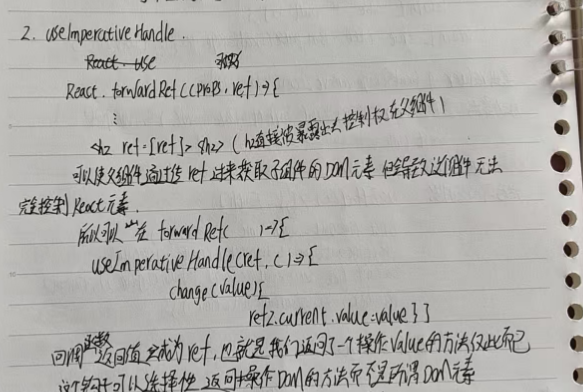 2. useImperativeHandle.
React. use
React. forwardRef((props, ref)=>{
⋮
<h2 ref={ref}> <h2> (h2直接被暴露出去控制权在父组件)
可以使父组件通过传ref进来获取子组件的DOM元素 但会导致这个组件无法
完全控制React元素.
所以可以在forwardRef( )=>{
useImperativeHandle(ref, ()=>{
change(value){
ref2.current.value=value}}
回调函数返回值会成为ref, 也就是我们返回了一个操作Value的方法仅此而已
这个钩子可以选择性返回操作DOM的方法而不是所谓DOM元素